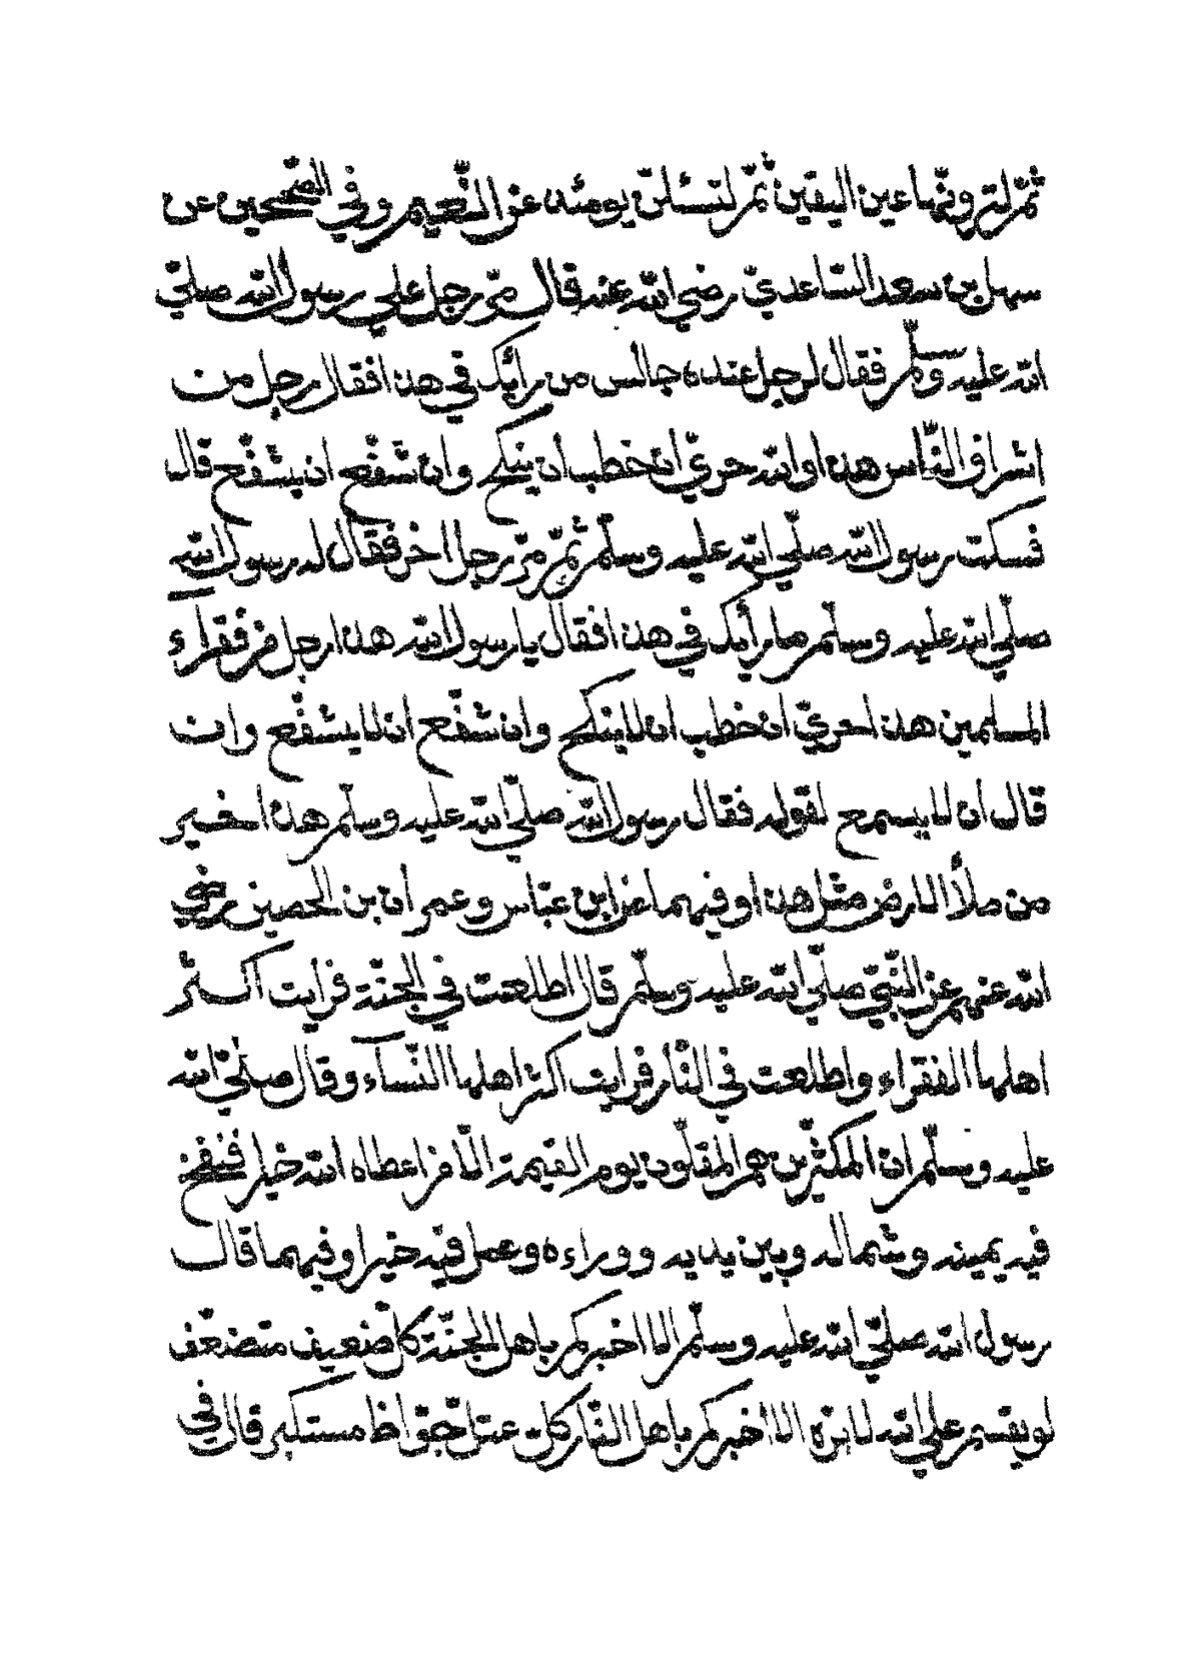 ثمّ لترونّها عين اليقين ثمّ لتسئلنّ يومئذ عن النّعيم وفي الصّحيحين عن
سهل بن سعد السّاعديّ رضي الله عنه قال مرّ رجل علي رسول الله صلّي
الله عليه وسلّم فقال لرجل عنده جالس من رأيك في هذا فقال رجل من
اشراف النّاس هذا والله حريّ ان خطب ان ينكح وان شفّع ان يشفّع قال
فسكت رسول الله صلّي الله عليه وسلّم ثمّ مرّ رجل اخر فقال له رسول الله
صلّي الله عليه وسلّم ما رأيك في هذا فقال يا رسول الله هذا رجل من فقراء
المسلمين هذا حريّ ان خطب ان لا ينكح وان شفّع ان لا يشفّع وان
قال ان لا يسمع لقوله فقال رسول الله صلّي الله عليه وسلّم هذا خير
من ملأ الارض مثل هذا وفيهما عن ابن عبّاس وعمران بن الحصين رضي
الله عنهم عن النّبيّ صلّي الله عليه وسلّم قال اطلعت في الجنّة فرأيت اكثر
اهلها الفقراء واطلعت في النّار فرأيت اكثر اهلها النّسآء وقال صلّي الله
عليه وسلّم ان المكثرين هم المقلّون يوم القيمة الّا من اعطاه الله خيرا فنفخ
فيه يمينه وشماله وبين يديه ووراءه وعمل فيه خيرا وفيهما قال
رسول الله صلّي الله عليه وسلّم الا اخبركم باهل الجنّة كلّ ضعيف متضعّف
لو يقسم علي الله لابرّه الا اخبركم باهل النّار كلّ عتلّ جوّاظ مستكبر قال في